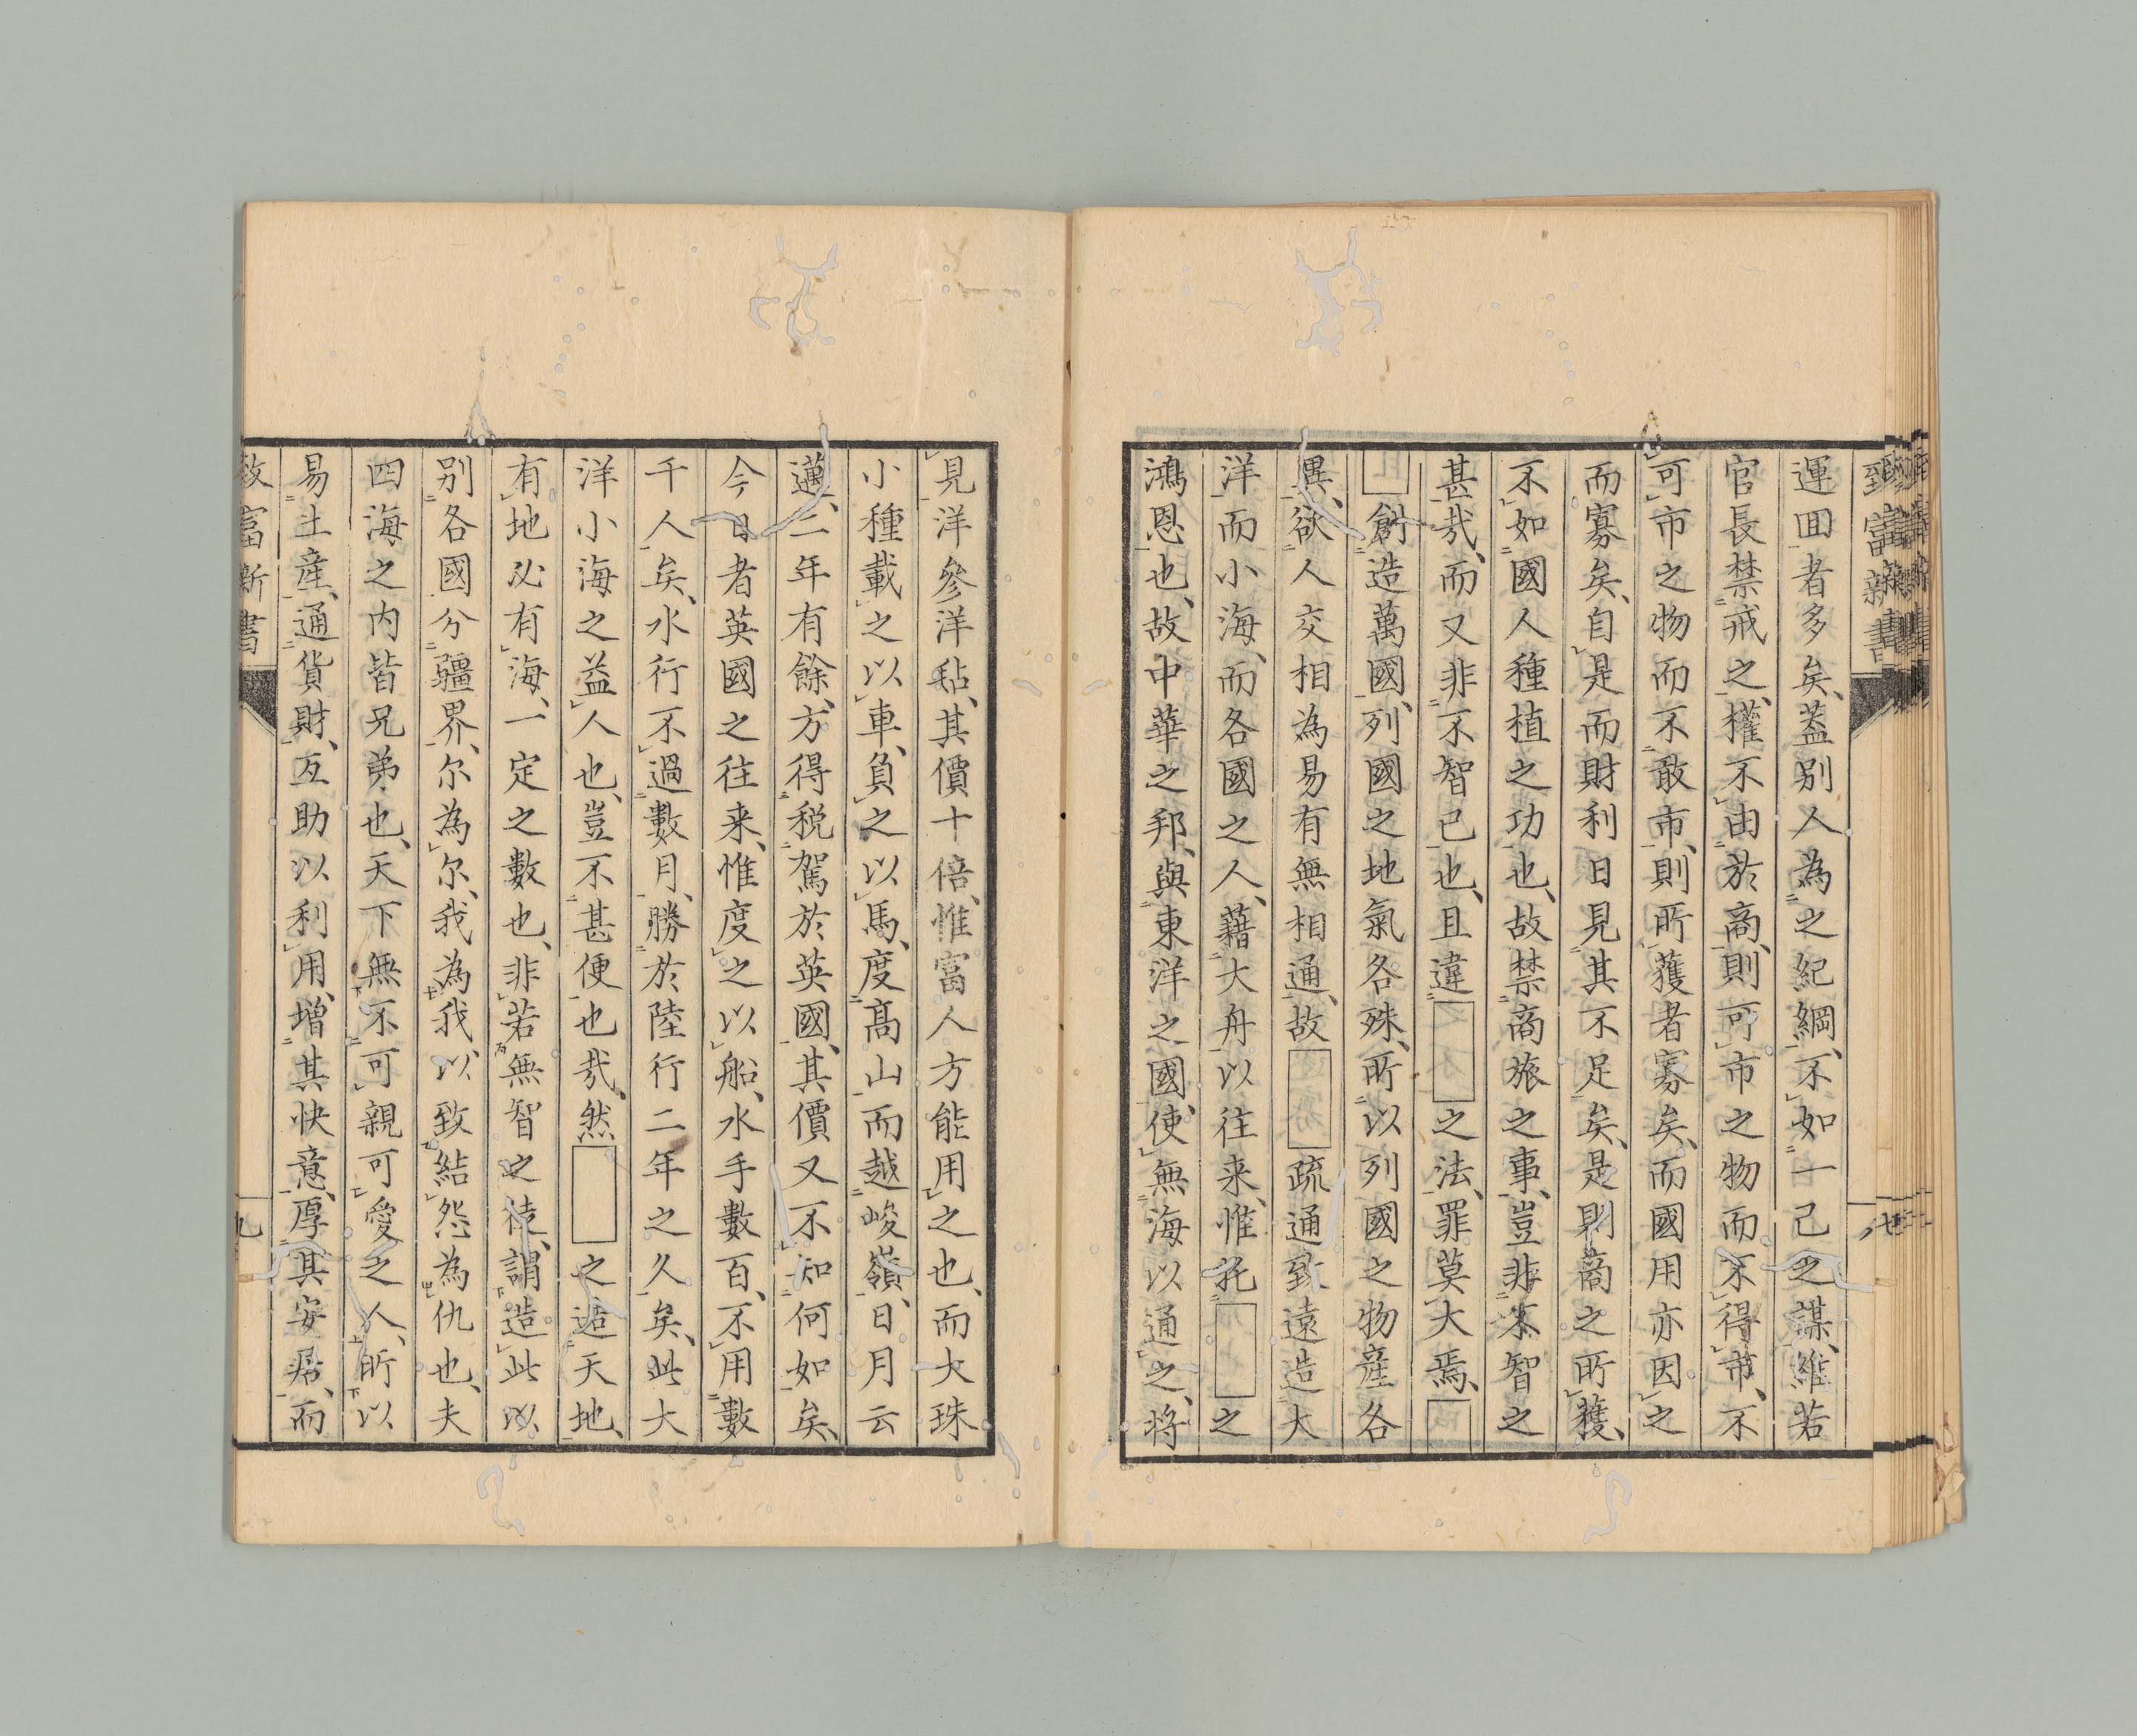 致富新書
運囬者多矣、蓋别人為之紀綱、不如一己之謀、維若
官長禁戒之、權不由於商、則可市之物而不得市、不
可市之物而不敢市、則所獲者寡矣、而國用亦因之
而寡矣、自是而財利日見其不足矣、是則商之所獲、
不如國人種植之功也、故禁商旅之事、豈非不智之
甚㢤、而又非不智已也、且違□□之法、罪莫大焉、□
□創造萬國、列國之地氣各殊、所以列國之物產各
異、欲人交相為易有無相通、故□□疏通致遠造大
洋而小海、而各國之人、藉大舟以往来、惟托□□之
鴻恩也、故中華之邦、與東洋之國、使無海以通之、将
見洋參洋毡、其價十倍、惟富人方能用之也、而大珠
小種載之以車、負之以馬、度髙山而越峻嶺、日月云
邁、二年有餘、方得税駕於英國、其價又不知何如矣、
今日者英國之往来、惟度之以船、水手數百、不用數
千人矣、水行不過數月、勝於陸行二年之久矣、此大
洋小海之益人也、豈不甚便也㢤、然□□之造天地、
有地必有海、一定之數也、非若無智之徒、謂造此以
别各國分疆界、尔為尔、我為我以致結怨為仇也、夫
四海之内皆兄弟也、天下無不可親可愛之人、所以
易土産、通貨財、互助以利用、增其快意、厚其安居、而
致富新書
九